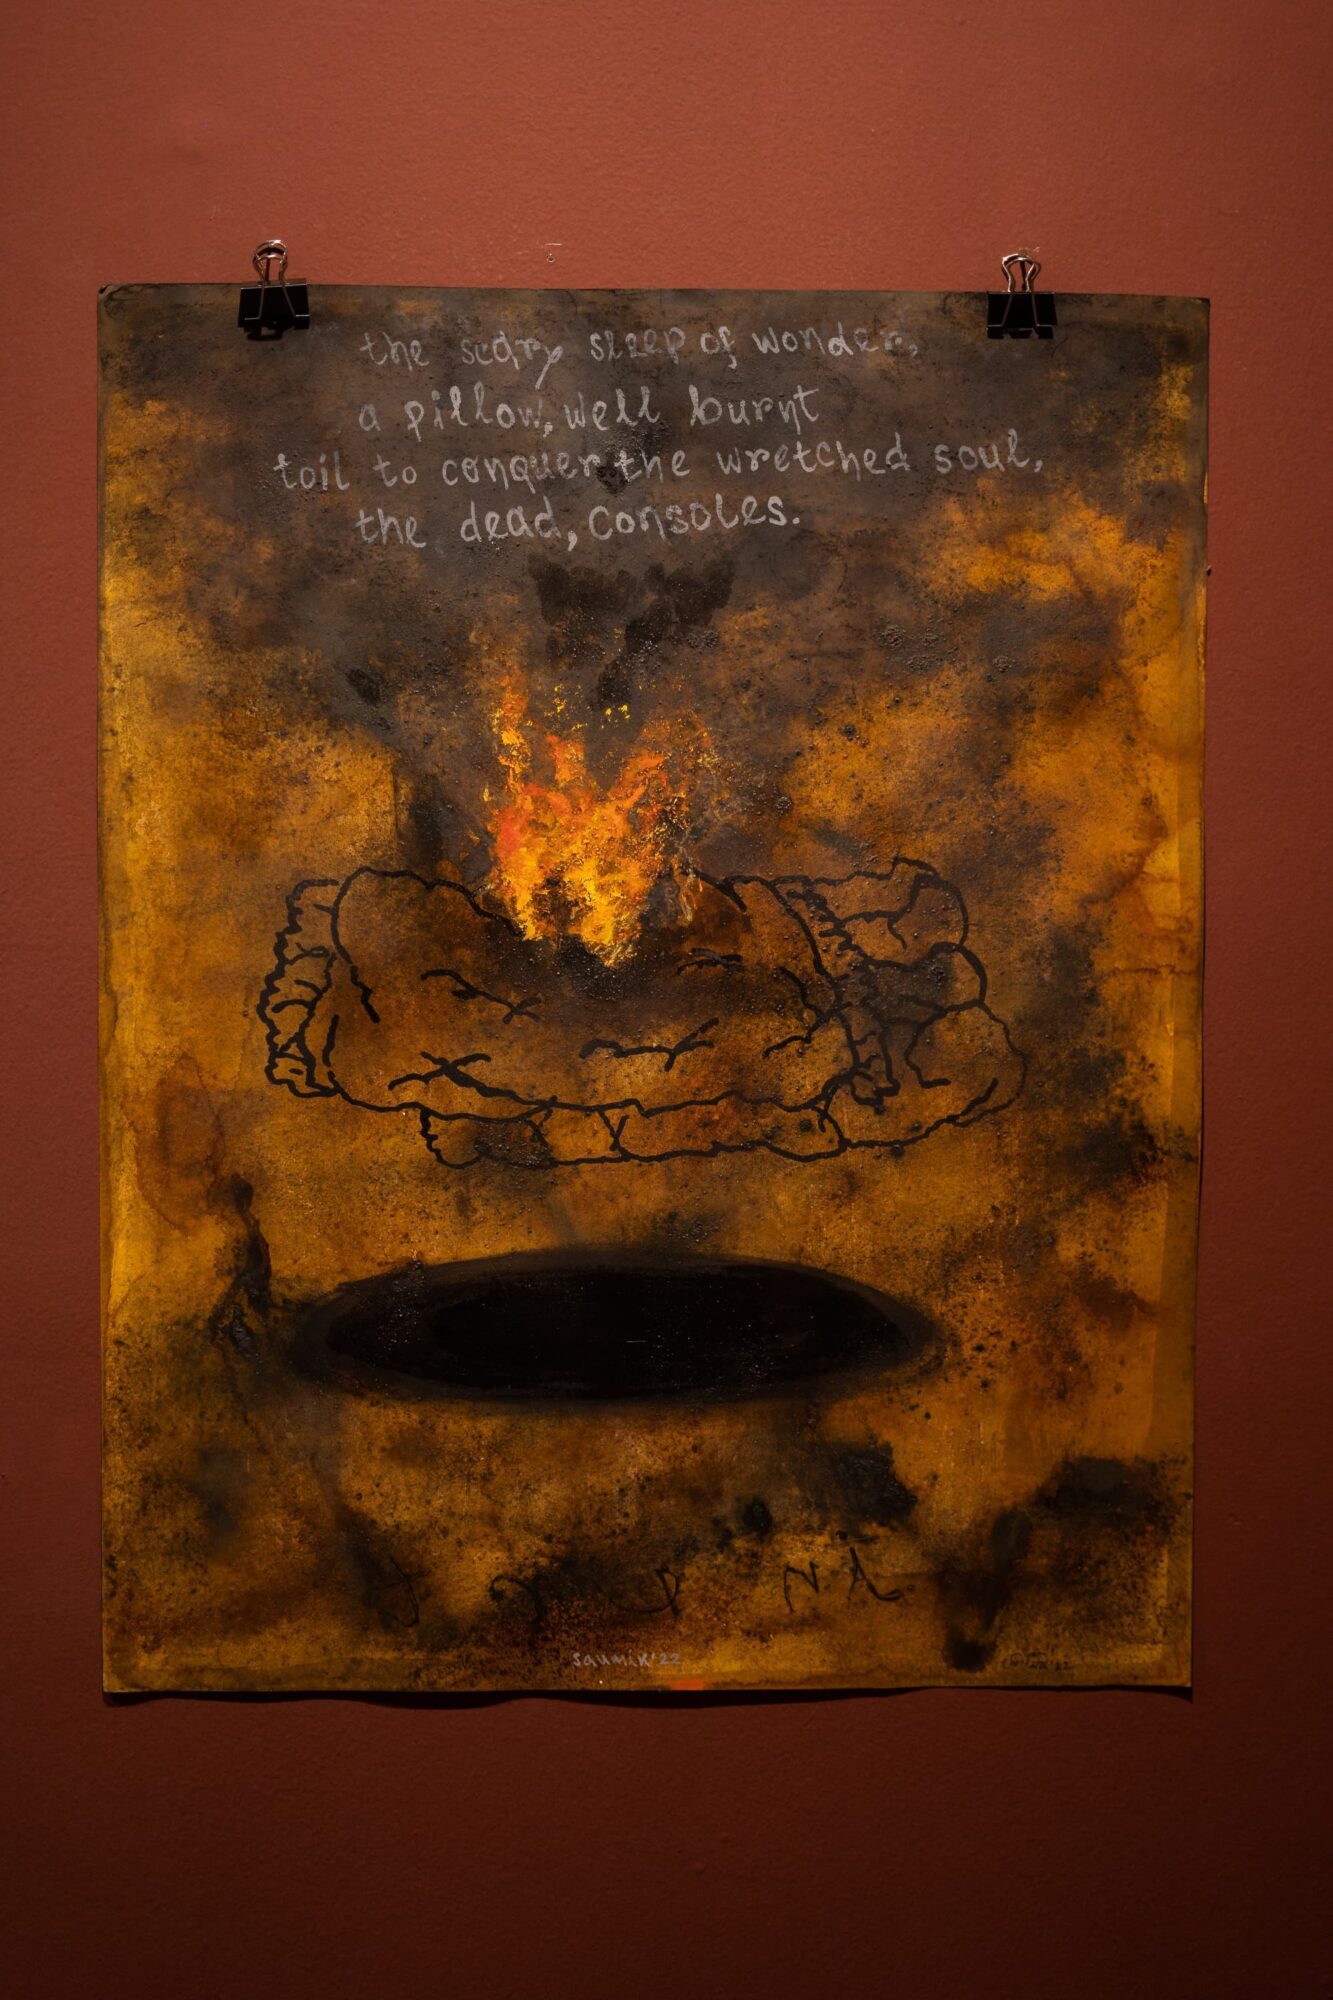 the scary sleep of wonder,
a pillow, well burnt
toil to conquer the wretched soul,
the dead, consoles.
saumik'22